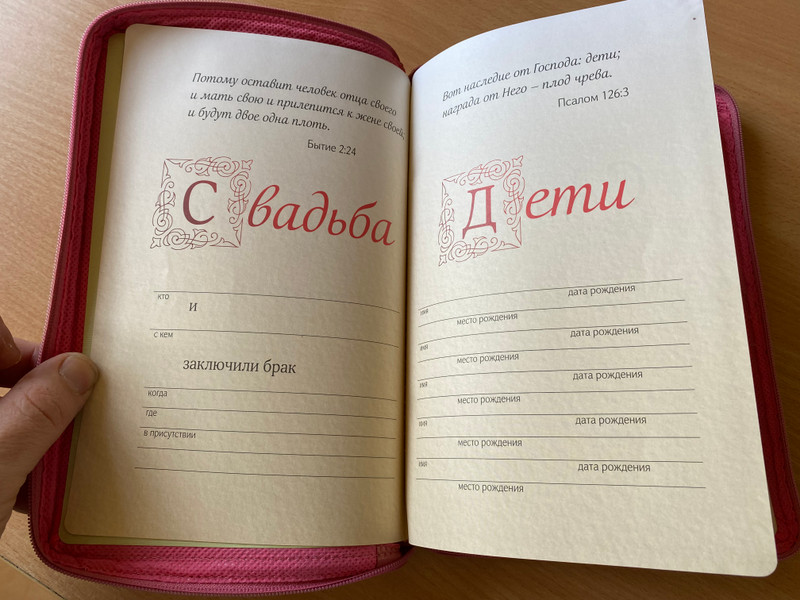 Потому оставит человек отца своего
и мать свою и прилепится к жене своей;
и будут двое одна плоть.
Бытие 2:24
Свадьба
кто
и
с кем
заключили брак
когда
где
в присутствии
Вот наследие от Господа: дети;
награда от Него – плод чрева.
Псалом 126:3
Дети
имя дата рождения
место рождения
имя дата рождения
место рождения
имя дата рождения
место рождения
имя дата рождения
место рождения
имя дата рождения
место рождения